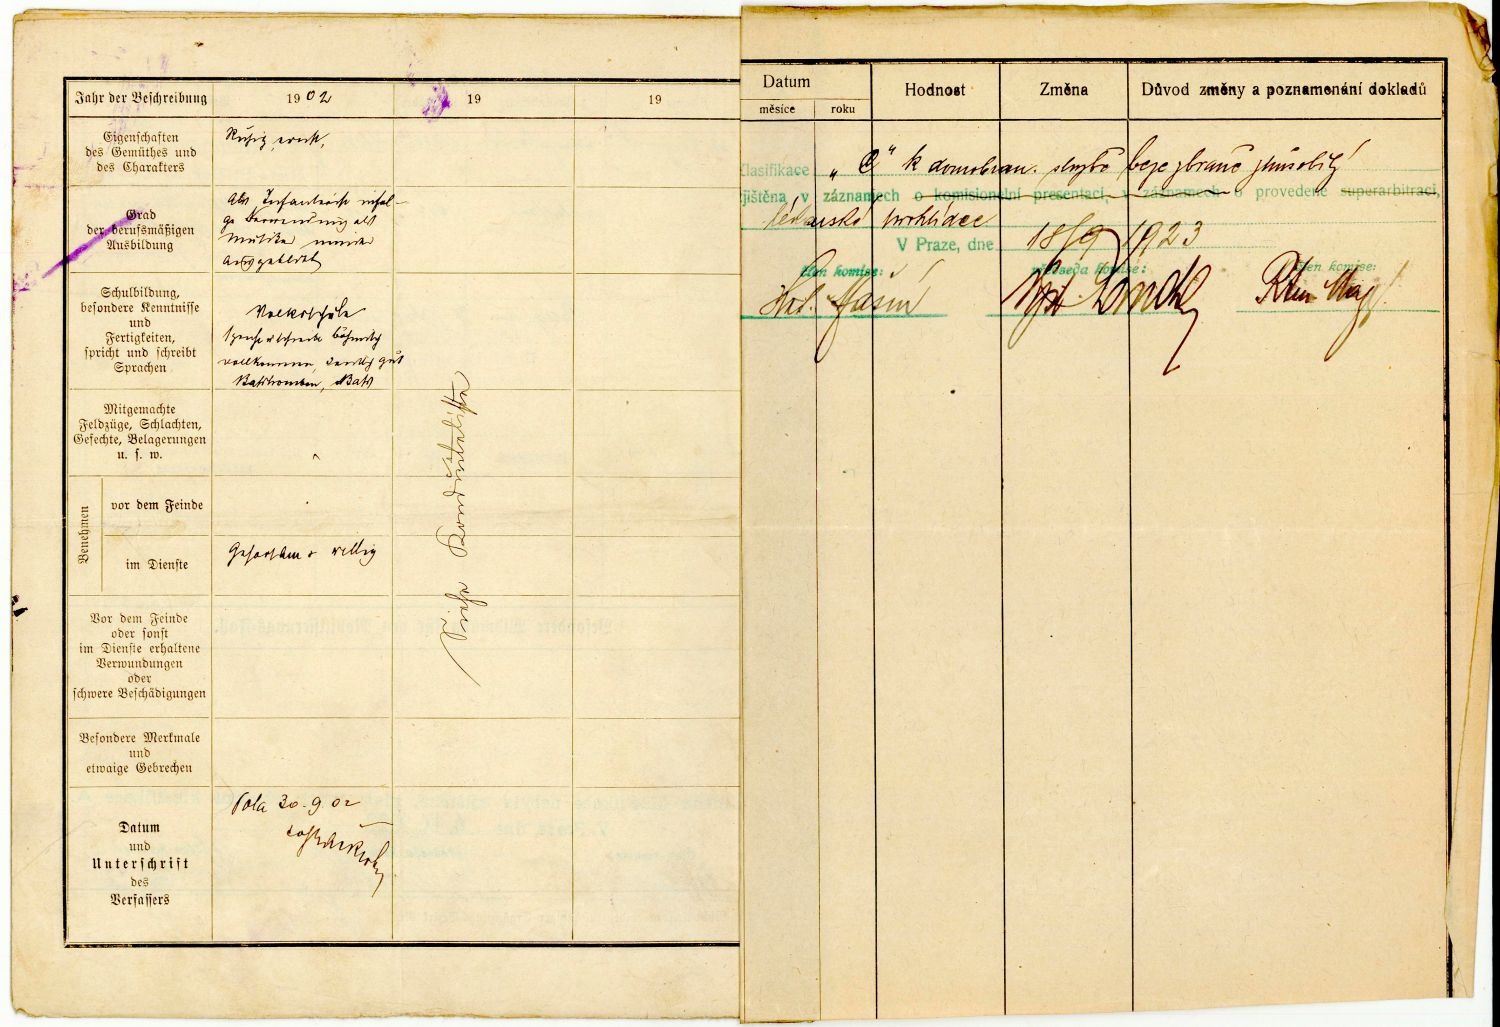 Jahr der Beschreibung
1902
19
19
Eigenschaften
des Gemüthes und
des Charakters
Ruhig, ernst,
Grad
der berufsmäßigen
Ausbildung
Als Infanterist infol-
ge Verwendung als
Musiker minder
ausgebildet
Schulbildung,
besondere Kenntnisse
und
Fertigkeiten,
spricht und schreibt
Sprachen
Volksschule
böhmisch
vollkommen, deutsch gut
Mitgemachte
Feldzüge, Schlachten,
Gefechte, Belagerungen
u. s. w.
Benehmen
vor dem Feinde
im Dienste
Gehorsam u willig
Siehe Konduiteliste
Vor dem Feinde
oder sonst
im Dienste erhaltene
Verwundungen
oder
schwere Beschädigungen
Besondere Merkmale
und
etwaige Gebrechen
Datum
und
Unterschrift
des
Verfassers
Pola 30.9.02
Datum
měsíce
roku
Hodnost
Změna
Důvod změny a poznamenání dokladů
Klasifikace „C“ k domobran. službě beze zbraně způsobilý
zjištěna v záznamech o komisionelní presentaci, v záznamech o provedené superarbitraci,
lékařské prohlídce
V Praze, dne 18/9 1923
člen komise:
předseda komise:
člen komise: